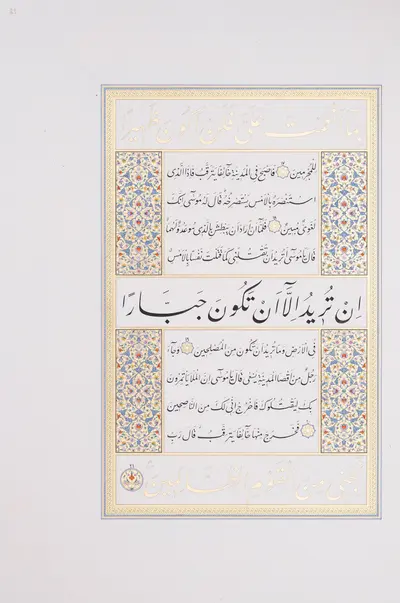 بما أنعمت علي فلن أكون ظهيرا
للمجرمين فاصبح في المدينة خائفا يترقب فاذا الذي
استنصره بالامس يستصرخه قال له موسى انك
لغوي مبين فلما ان اراد ان يبطش بالذي هو عدو لهما
قال يا موسى اتريد ان تقتلني كما قتلت نفسا بالامس
اِنْ تُريدُ اِلّآ اَنْ تَكُونَ جَبّارًا
في الارض وما تريد ان تكون من المصلحين وجاء
رجل من اقصا المدينة يسعى قال يا موسى ان الملا يأتمرون
بك ليقتلوك فاخرج اني لك من الناصحين
فخرج منها خائفا يترقب قال رب
نجني من القوم الظالمين